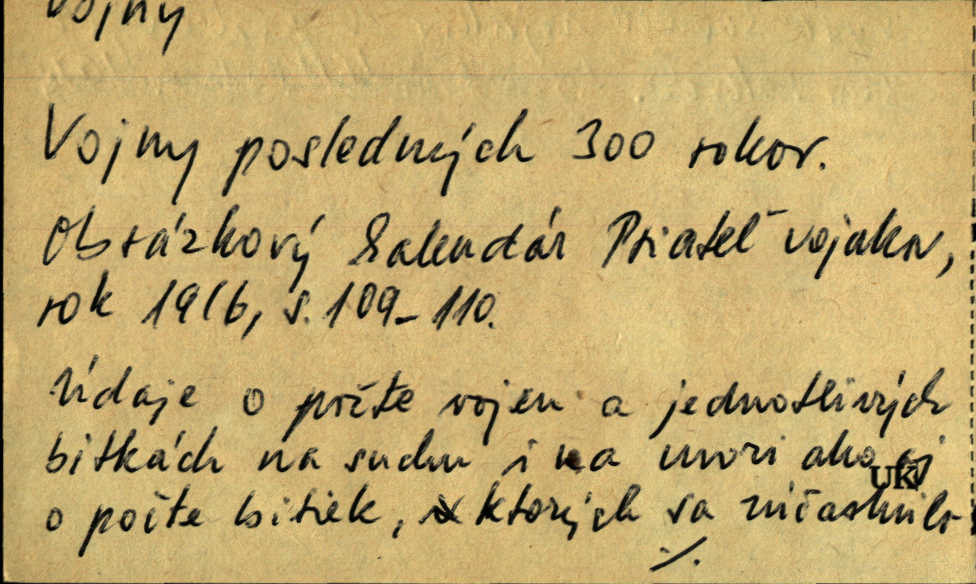 Vojny
Vojny posledných 300 rokov.
Obrázkový Kalendár Priateľ vojakov,
rok 1916, s. 109-110.
Údaje o počte vojen a jednotlivých
bitkách na suchu i na mori ako aj
UK
o počte bitiek, ktorých sa zúčastnilo
./.